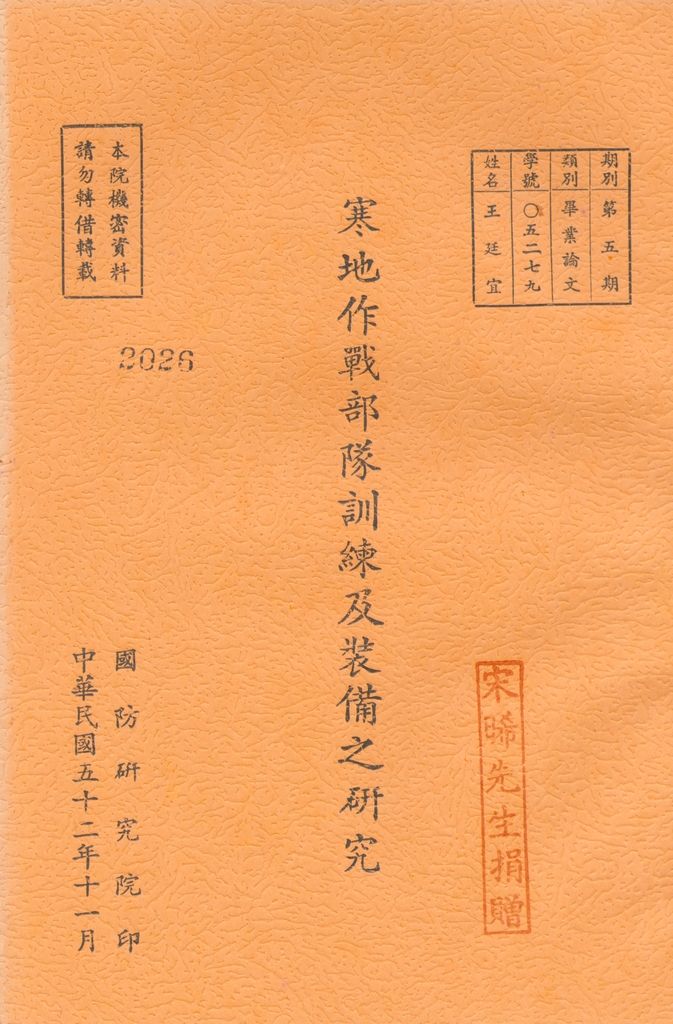 期別 第五期
類別 畢業論文
學號 〇五二七九
姓名 王廷宜
寒地作戰部隊訓練及裝備之研究
本院機密資料
請勿轉借轉載
2026
國防研究院印
中華民國五十二年十一月
宋晞先生捐贈